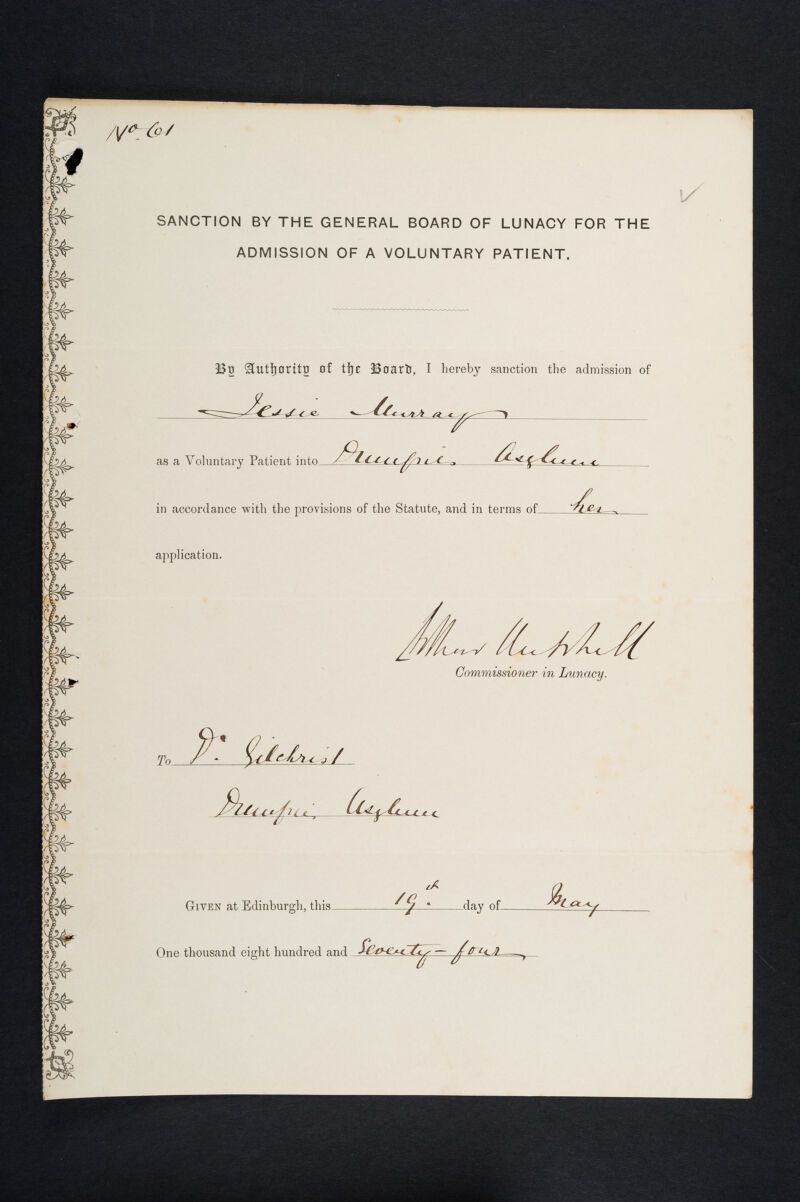 No. 61
SANCTION BY THE GENERAL BOARD OF LUNACY FOR THE
ADMISSION OF A VOLUNTARY PATIENT.
By Authority of the Board, I hereby sanction the admission of
Jessie Murray
as a Voluntary Patient into Dumfries Asylum
in accordance with the provisions of the Statute, and in terms of her
application.
Arthur Mitchell
Commissioner in Lunacy.
To Dr. Gilchrist
Dumfries Asylum
GIVEN at Edinburgh, this 19th. day of May
One thousand eight hundred and Seventy-four